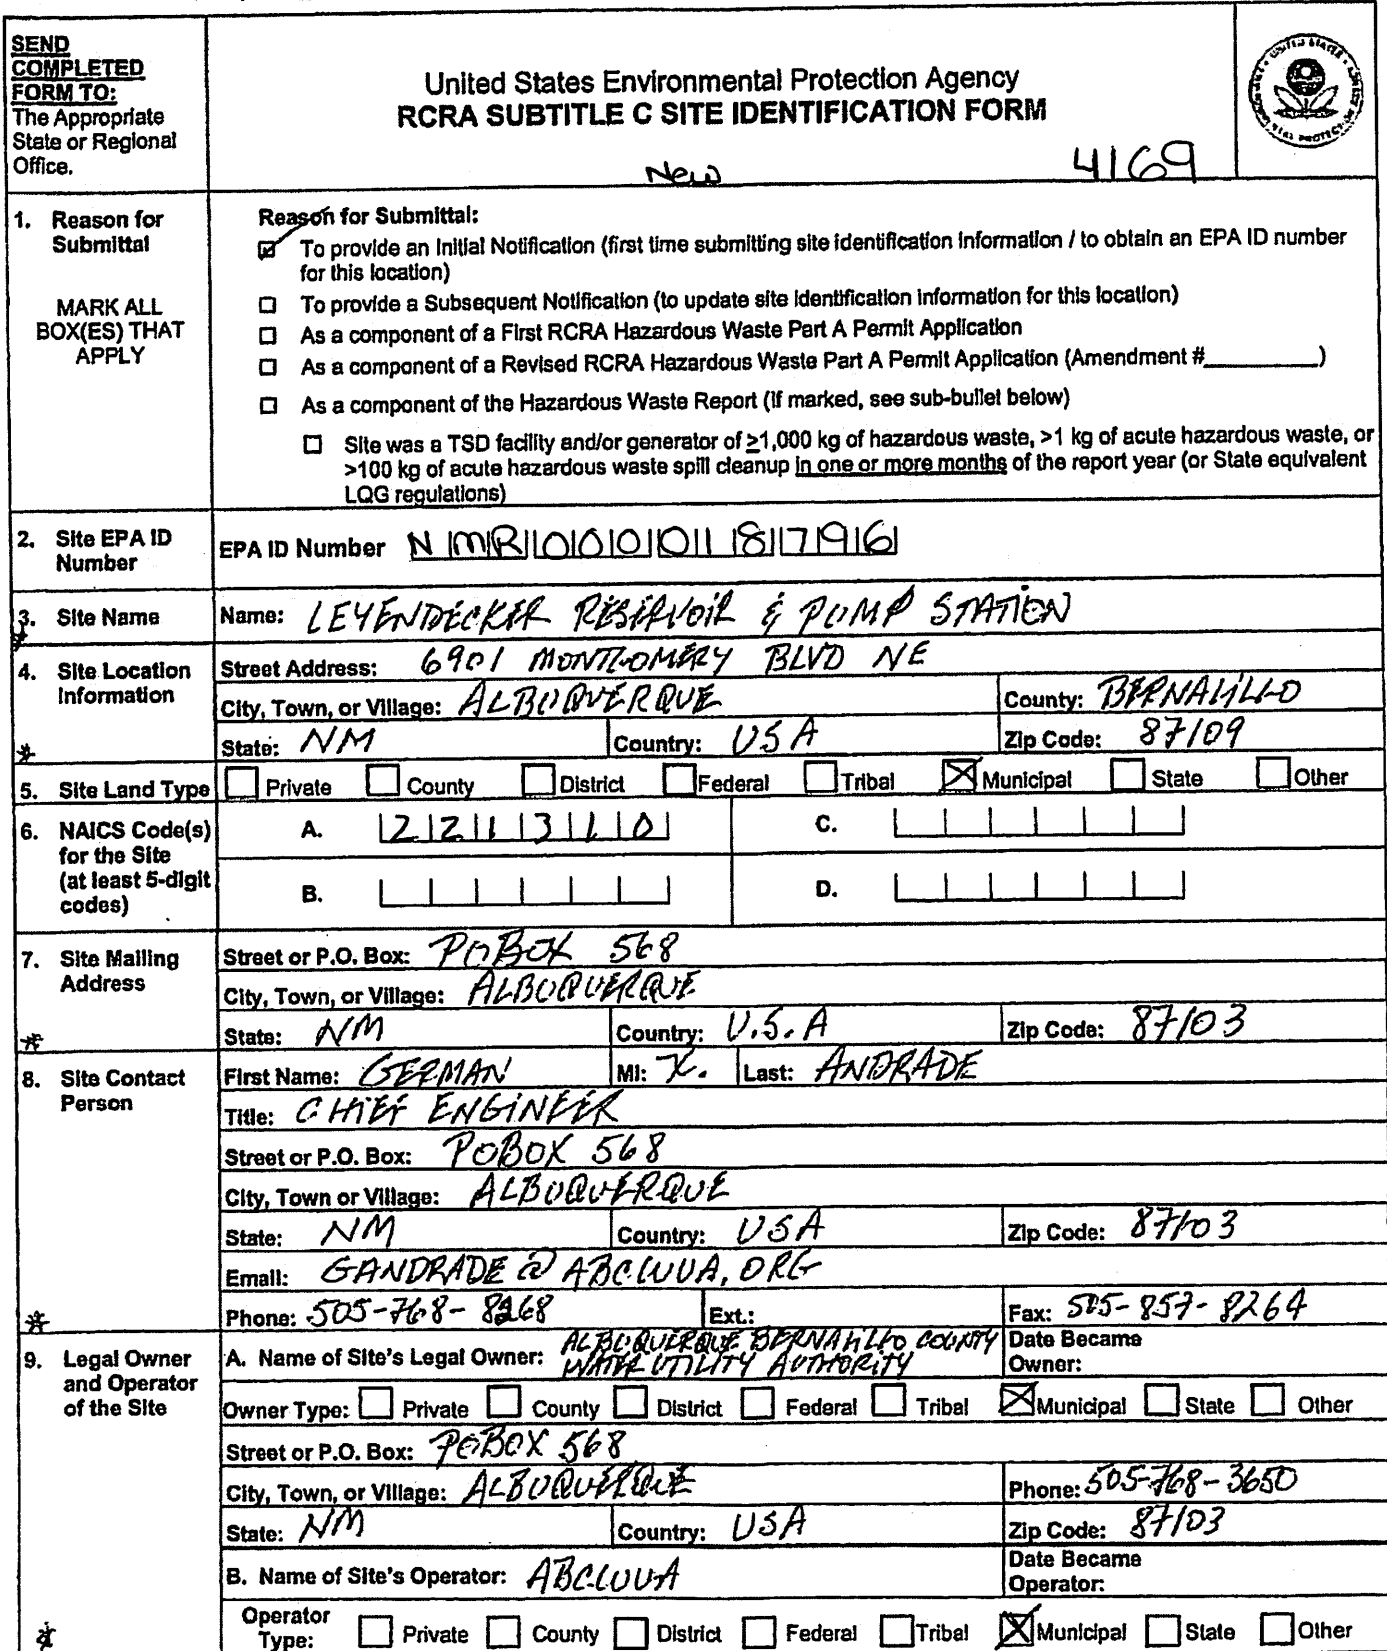 SEND
COMPLETED
FORM TO:
The Appropriate
State or Regional
Office.
United States Environmental Protection Agency
RCRA SUBTITLE C SITE IDENTIFICATION FORM
New 4169
1. Reason for
Submittal
MARK ALL
BOX(ES) THAT
APPLY
Reason for Submittal:
☑ To provide an Initial Notification (first time submitting site identification information / to obtain an EPA ID number
for this location)
☐ To provide a Subsequent Notification (to update site identification information for this location)
☐ As a component of a First RCRA Hazardous Waste Part A Permit Application
☐ As a component of a Revised RCRA Hazardous Waste Part A Permit Application (Amendment #__________)
☐ As a component of the Hazardous Waste Report (If marked, see sub-bullet below)
☐ Site was a TSD facility and/or generator of ≥1,000 kg of hazardous waste, >1 kg of acute hazardous waste, or
>100 kg of acute hazardous waste spill cleanup in one or more months of the report year (or State equivalent
LQG regulations)
2. Site EPA ID
Number
EPA ID Number NMR000018796
3. Site Name
Name: LEYENDECKER RESERVOIR & PUMP STATION
4. Site Location
Information
Street Address: 6901 MONTGOMERY BLVD NE
City, Town, or Village: ALBUQUERQUE County: BERNALILLO
State: NM Country: USA Zip Code: 87109
5. Site Land Type ☐ Private ☐ County ☐ District ☐ Federal ☐ Tribal ☒ Municipal ☐ State ☐ Other
6. NAICS Code(s)
for the Site
(at least 5-digit
codes)
A. 221310 C.
B. D.
7. Site Mailing
Address
Street or P.O. Box: PO BOX 568
City, Town, or Village: ALBUQUERQUE
State: NM Country: U.S.A Zip Code: 87103
8. Site Contact
Person
First Name: GERMAN MI: X. Last: ANDRADE
Title: CHIEF ENGINEER
Street or P.O. Box: PO BOX 568
City, Town or Village: ALBUQUERQUE
State: NM Country: USA Zip Code: 87103
Email: GANDRADE@ABCWUA.ORG
Phone: 505-768-8268 Ext.: Fax: 505-857-8264
9. Legal Owner
and Operator
of the Site
A. Name of Site's Legal Owner: ALBUQUERQUE BERNALILLO COUNTY
WATER UTILITY AUTHORITY
Date Became
Owner:
Owner Type: ☐ Private ☐ County ☐ District ☐ Federal ☐ Tribal ☒ Municipal ☐ State ☐ Other
Street or P.O. Box: PO BOX 568
City, Town, or Village: ALBUQUERQUE Phone: 505-768-3650
State: NM Country: USA Zip Code: 87103
B. Name of Site's Operator: ABCWUA
Date Became
Operator:
Operator
Type: ☐ Private ☐ County ☐ District ☐ Federal ☐ Tribal ☒ Municipal ☐ State ☐ Other